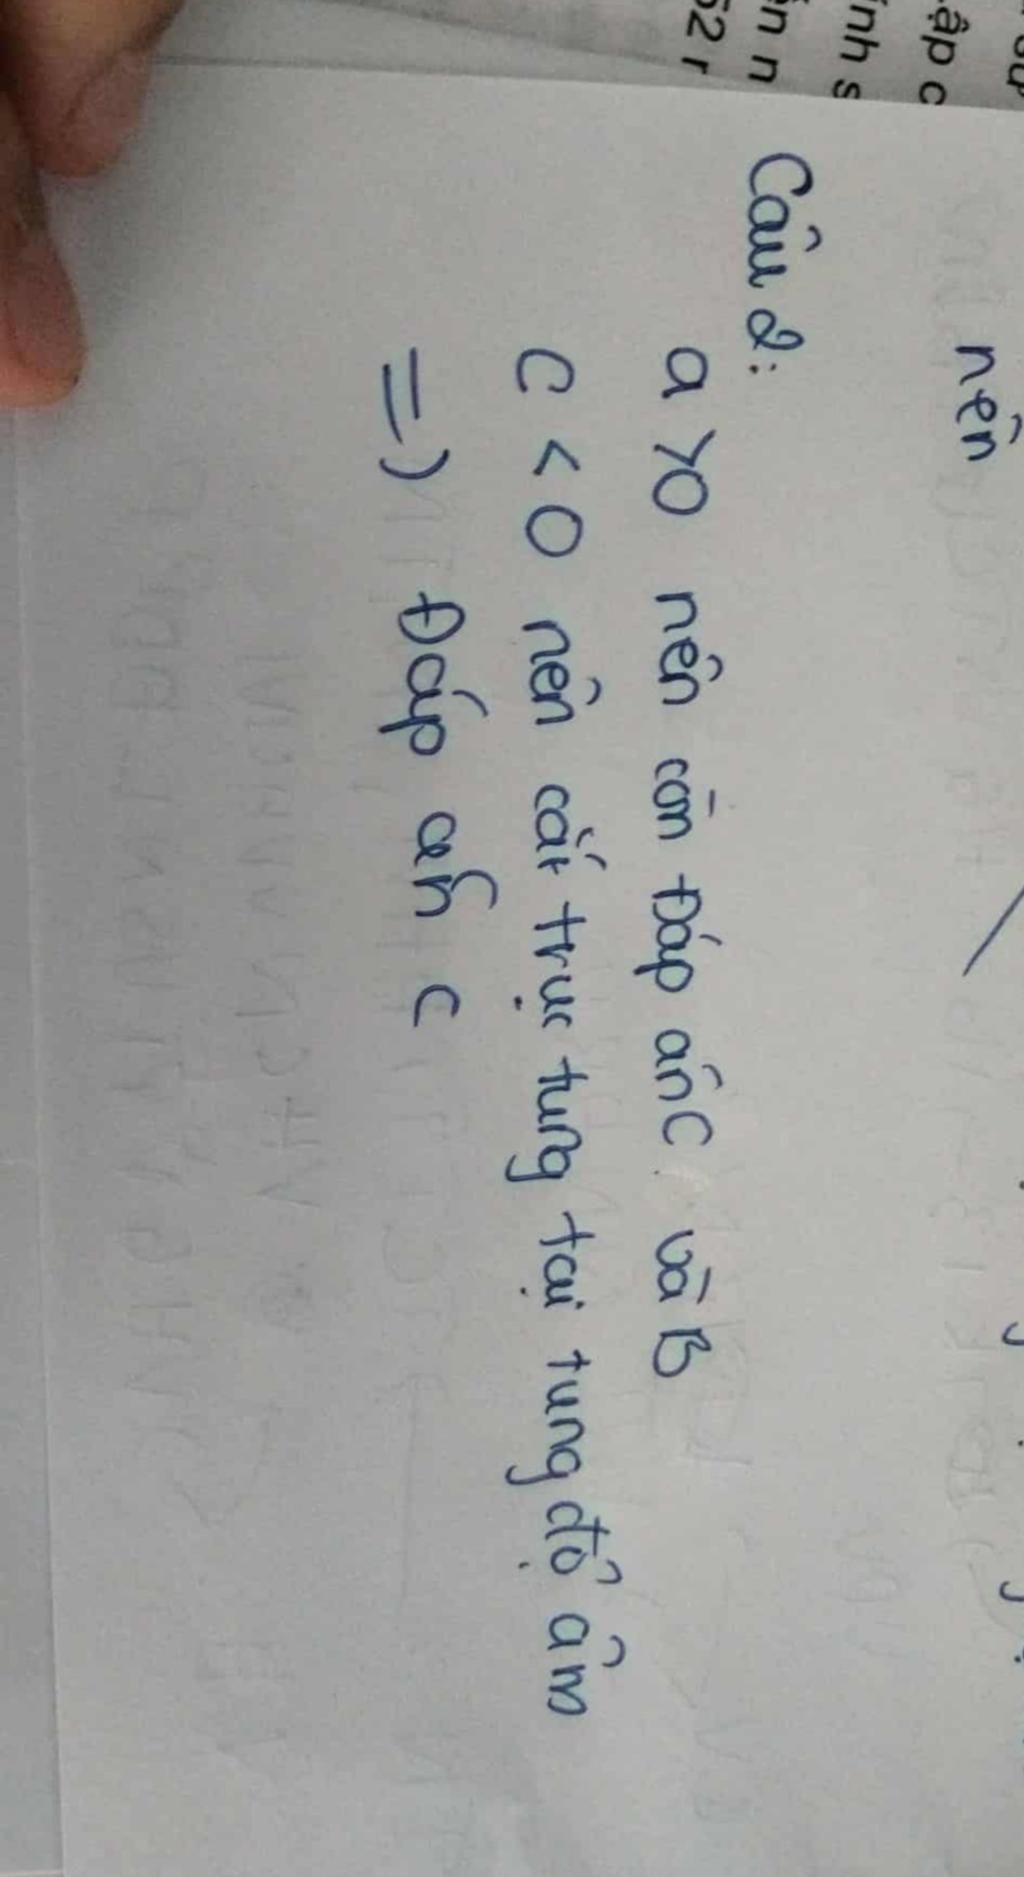 nên
Câu 2:
a > 0 nên còn Đáp án C và B
C < 0 nên cắt trục tung tại tung độ âm
=) Đáp án C